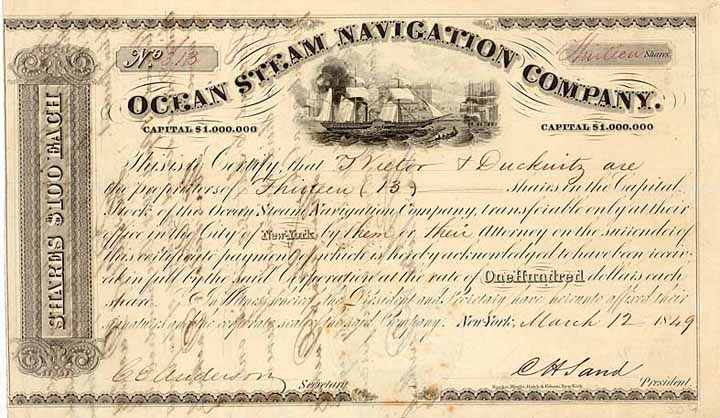 No 313
Thirteen Shares
OCEAN STEAM NAVIGATION COMPANY.
CAPITAL $1.000.000
CAPITAL $1.000.000
SHARES $100 EACH
This is to Certify that T Vietor & Duckwitz are
the proprietors of Thirteen (13) shares in the Capital
Stock of the Ocean Steam Navigation Company, transferable only at their
office in the City of New-York by them or their Attorney on the surrender of
this certificate payment of which is hereby acknowledged to have been recei-
ved in full by the said Corporation at the rate of One Hundred dollars each
share. In Witness whereof the President and Secretary have hereunto affixed their
signatures and the corporate seal of the said Company. New-York, March 12 1849
C C Anderson Secretary
C H Sand President
New York